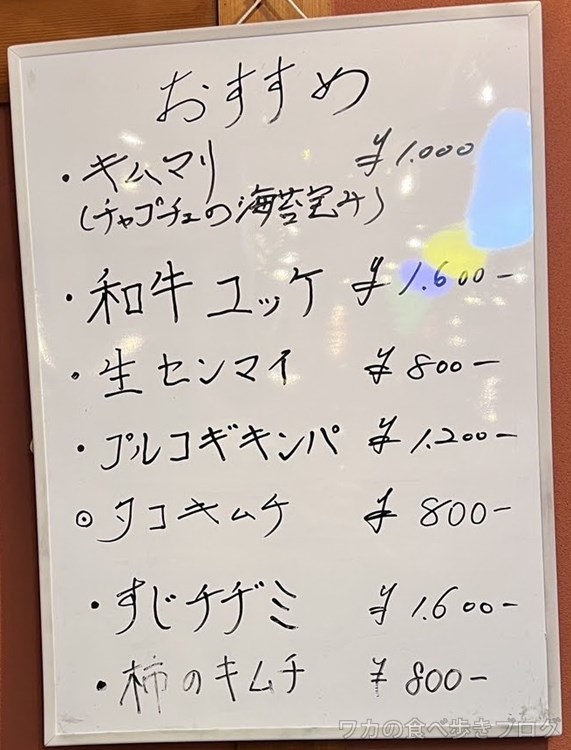 おすすめ
・キムマリ ¥1.000
(チャプチェの海苔包み)
・和牛ユッケ ¥1.600-
・生センマイ ¥800-
・プルコギキンパ ¥1.200-
◎タコキムチ ¥800-
・すじチヂミ ¥1.600-
・柿のキムチ ¥800-
ワカの食べ歩きブログ